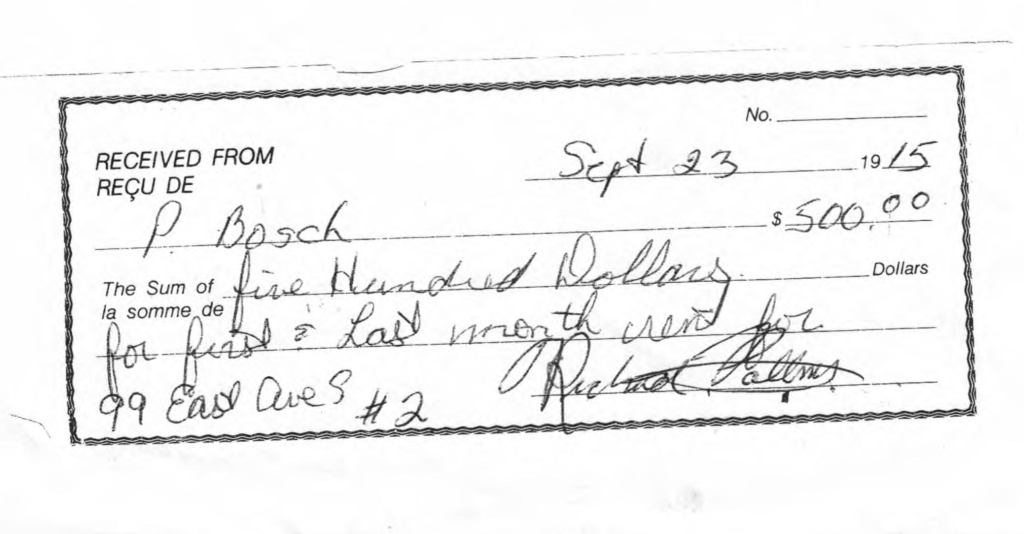 No.
RECEIVED FROM
REÇU DE
Sept 23 1915
P. Bosch $ 500.00
The Sum of
la somme de
five Hundred Dollars Dollars
for first & Last month rent for
99 East Ave S #2
Richard